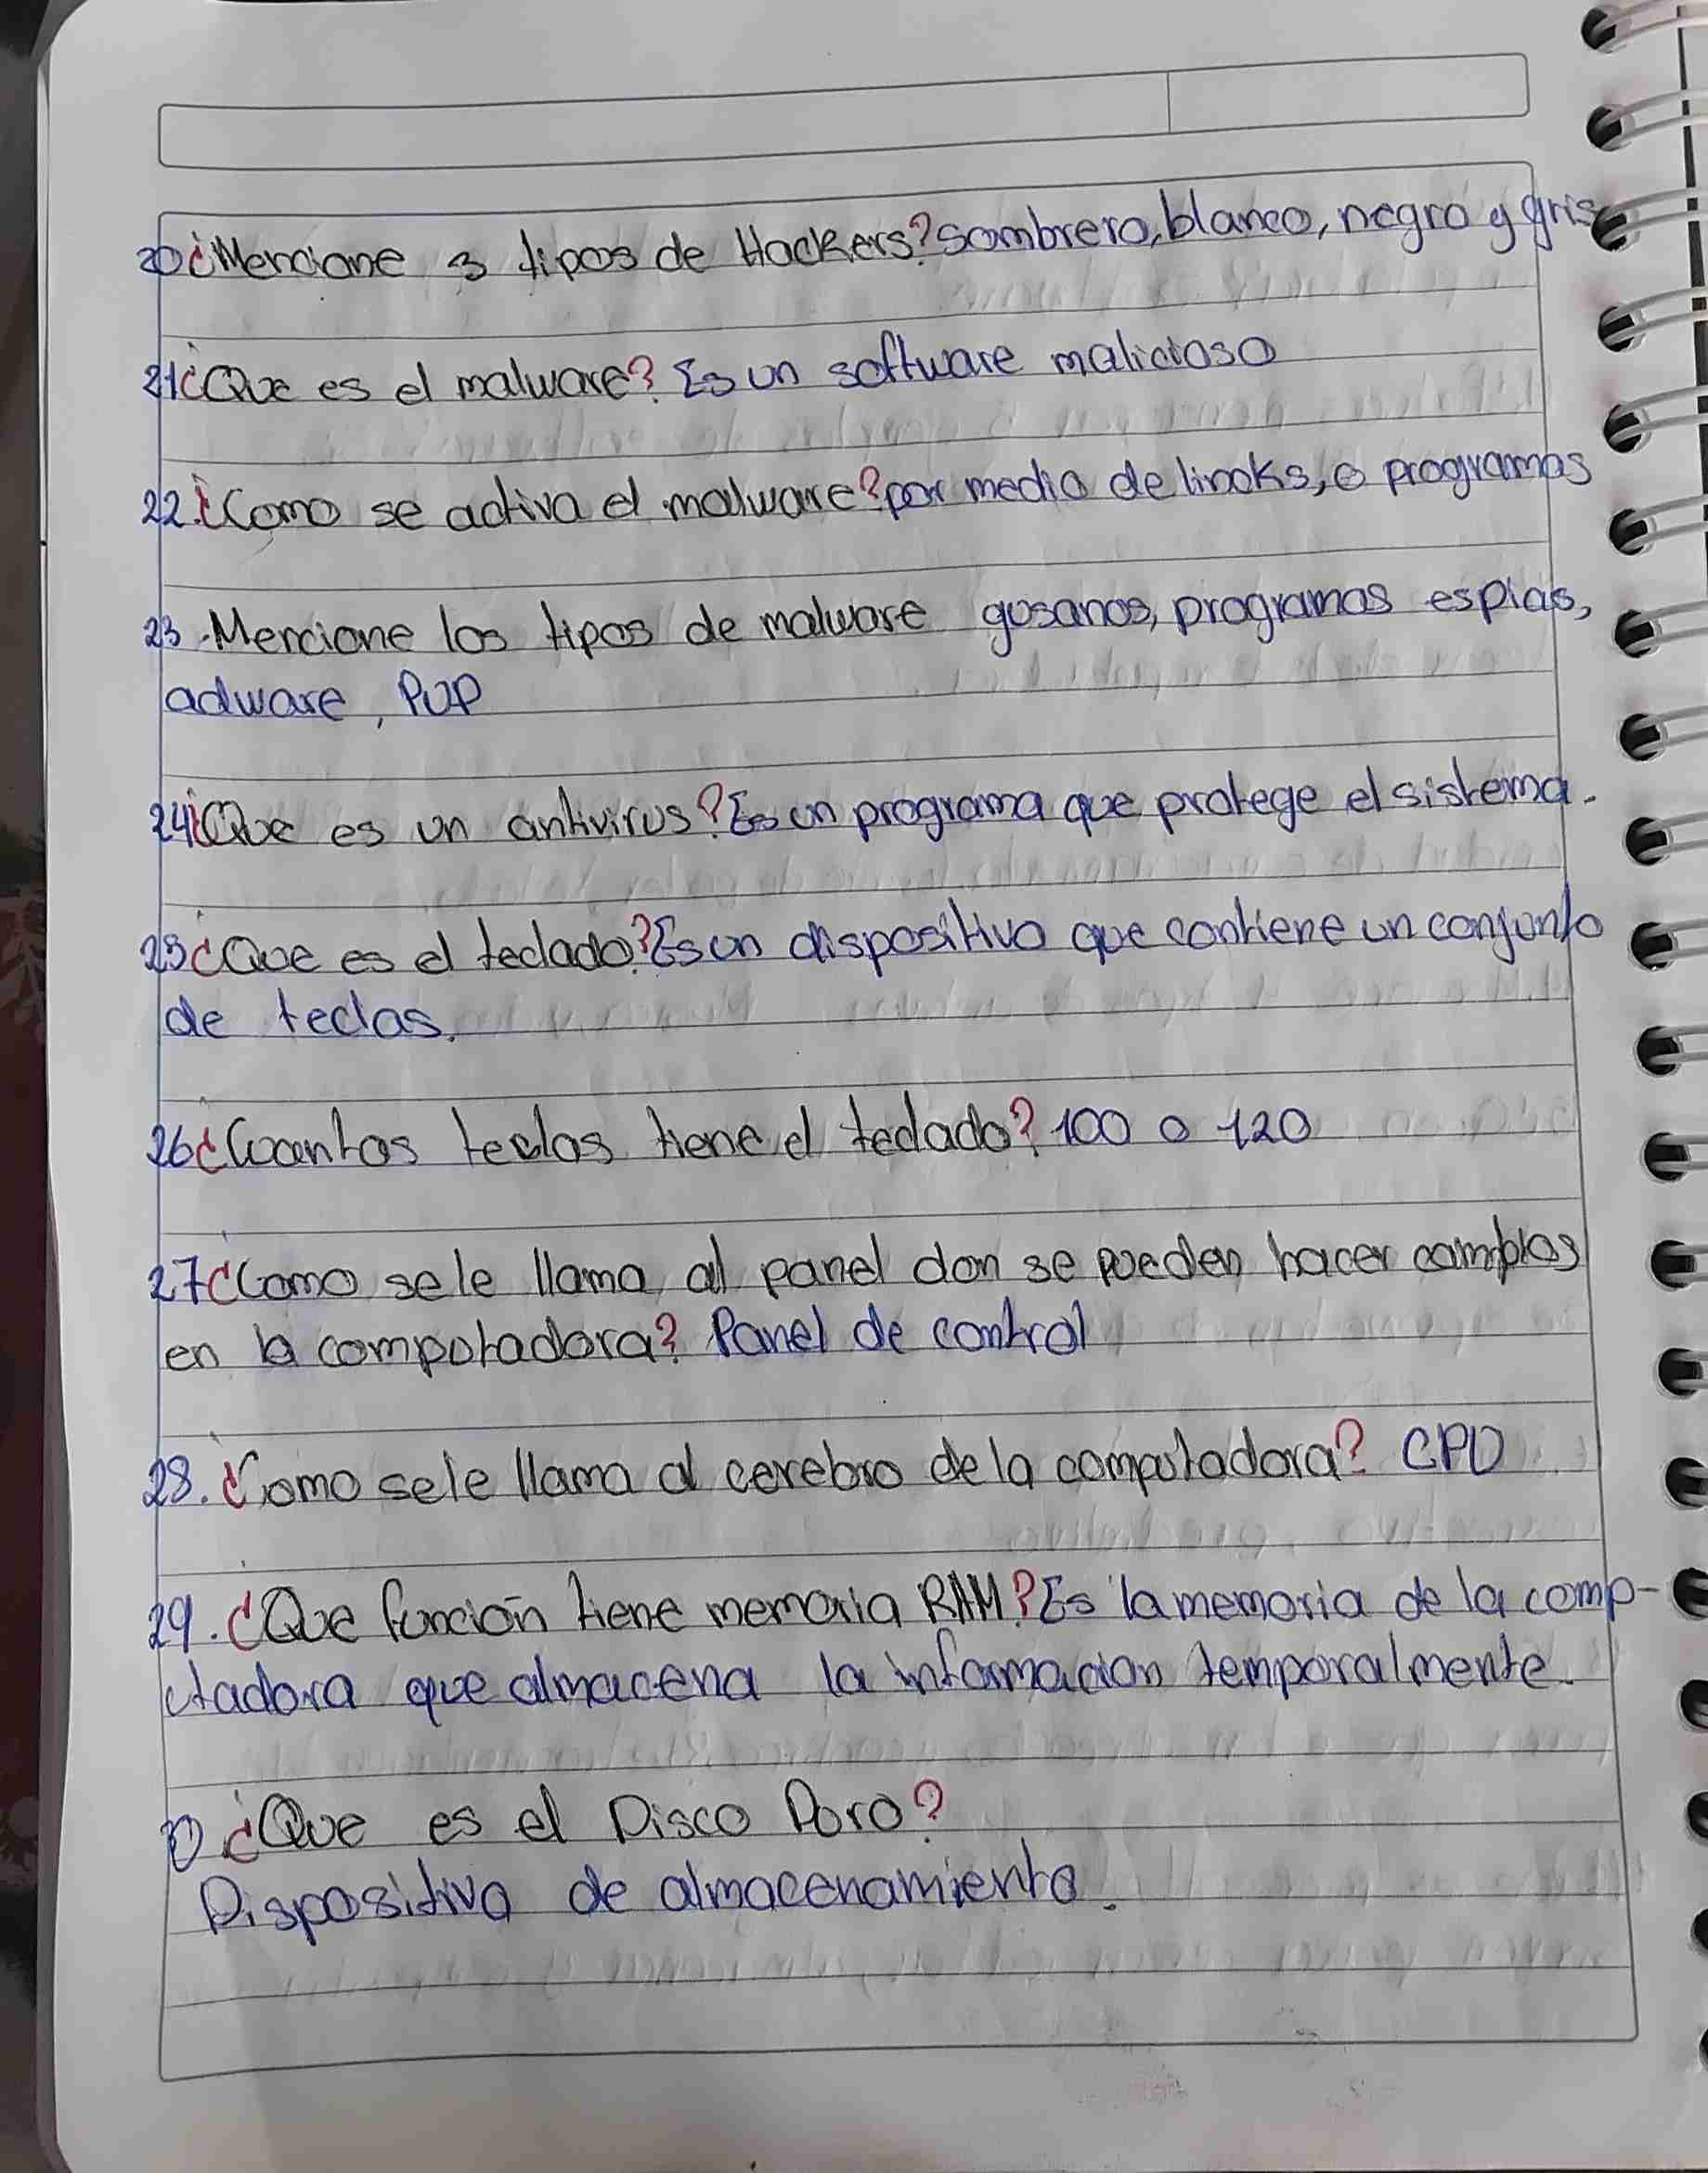 20¿Mencione 3 tipos de Hackers? sombrero, blanco, negro y gris
21¿Que es el malware? Es un software malicioso
22.¿Como se activa el malware? por medio de linoks, o programas
23.Mencione los tipos de malware gusanos, programas espias,
adware, PUP
24¿Que es un antivirus? Es un programa que protege el sistema.
25¿Que es el teclado? Es un dispositivo que contiene un conjunto
de teclas.
26¿Cuantas teclas tiene el teclado? 100 o 120
27¿Como sele llama al panel don se pueden hacer cambios
en la computadora? Panel de control
28. ¿Como sele llama al cerebro de la computadora? CPU
29. ¿Que función tiene memoria RAM? Es la memoria de la comp-
utadora que almacena la informacion temporalmente.
30 ¿Que es el Disco Duro?
Dispositivo de almacenamiento.